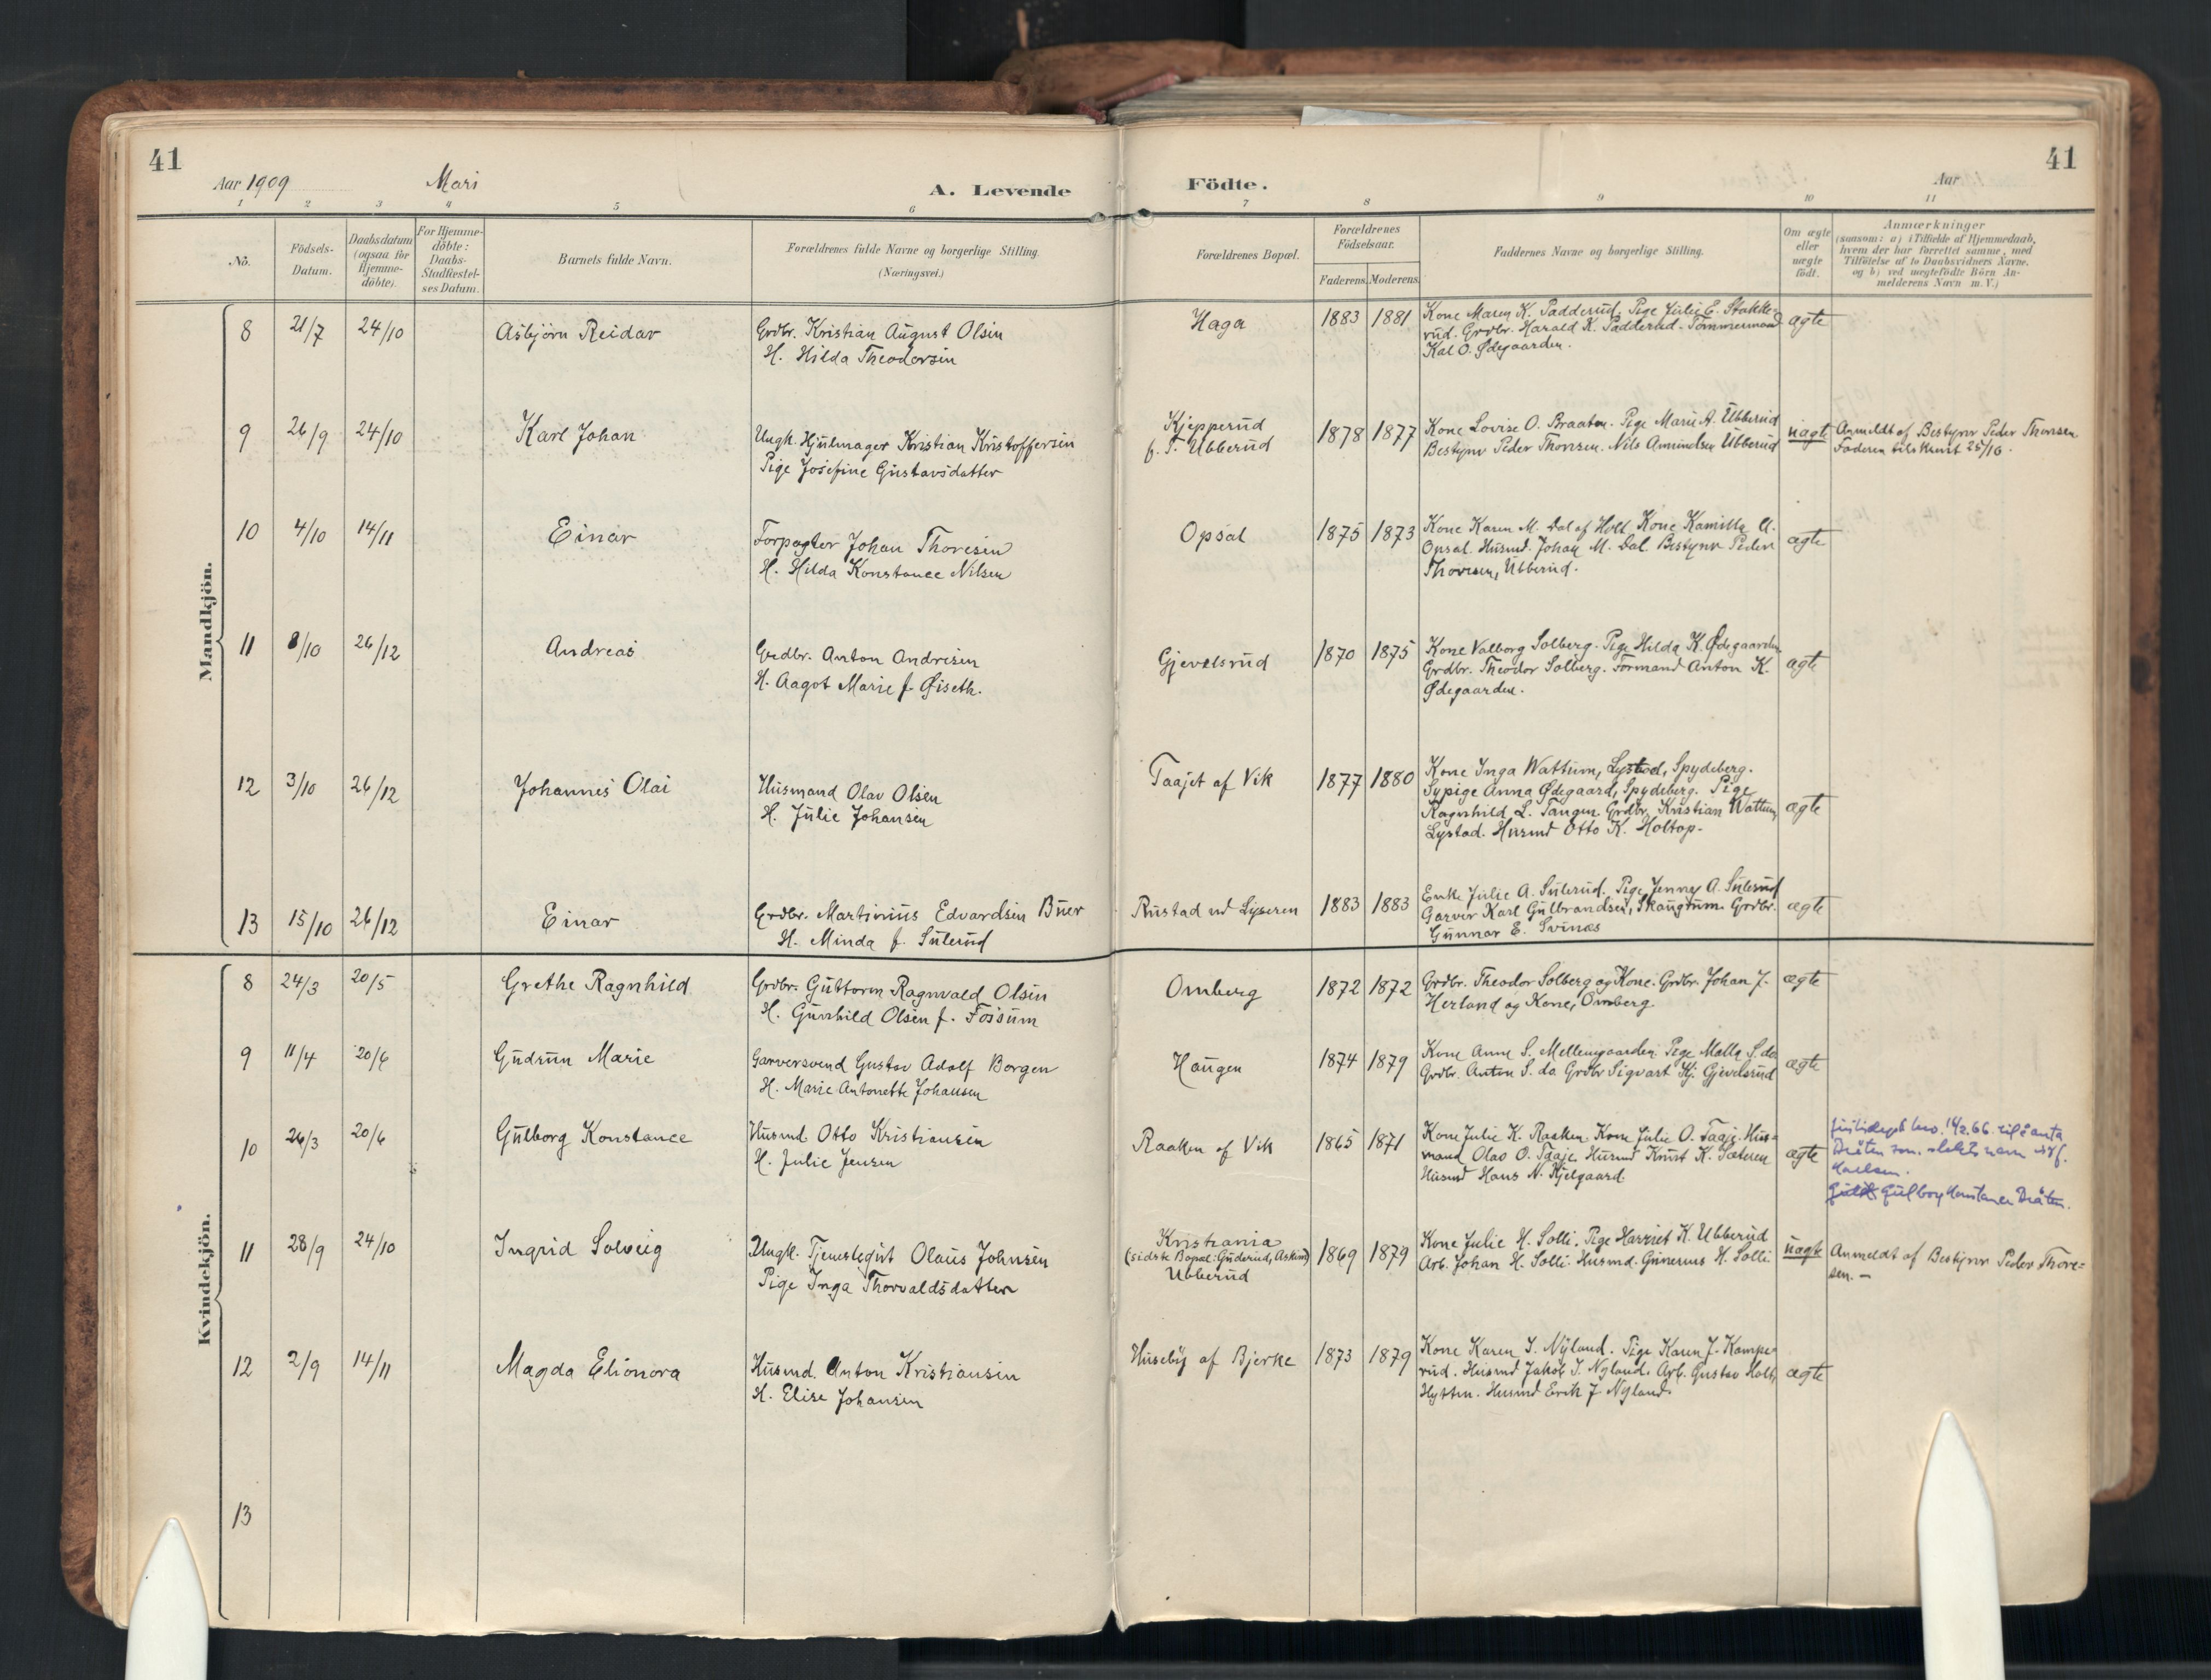 41
Aar 1909
Mari
A. Levende
Födte.
Aar
41
1 2 3 4 5 6 7 8 9 10 11
No.
Födsels-
Datum.
Daabsdatum
(ogsaa för
Hjemme-
döbte).
For Hjemme-
döbte:
Daabs-
Stadfæstel-
ses Datum.
Barnets fulde Navn.
Forældrenes fulde Navne og borgerlige Stilling.
(Næringsvei.)
Forældrenes Bopæl.
Forældrenes
Födselsaar.
Faderens. Moderens.
Faddernes Navne og borgerlige Stilling.
Om ægte
eller
uægte
födt.
Anmærkninger
(saasom: a) i Tilfælde af Hjemmedaab,
hvem der har forrettet samme, med
Tilföielse af to Daabsvidners Navne,
og b) ved uægtefödte Börn An-
melderens Navn m. V.)
Mandkjön.
8 21/7 24/10 Asbjörn Reidar
Grdbr. Kristian August Olsen
H. Hilda Theodorsen
Haga 1883 1881
Kone Maren K. Padderud. Pige Julie E. Stakke-
rud. Grdbr. Harald K. Padderud. Tömmermand
Kal O. Ødegaarden.
ægte
9 26/9 24/10 Karl Johan
Ungk. Hjulmager Kristian Kristoffersen
Pige Josefine Gustavsdatter
Kjepperud
f. T. Ubberud
1878 1877
Kone Lovise O. Braaten. Pige Marie A. Ubberud
Bestyrer Peder Thoresen. Nils Amundsen Ubberud
uægte
Anmeldt af Bestyrer Peder Thoresen
Faderen tilskrevet 25/10.
10 4/10 14/11 Einar
Forpagter Johan Thoresen
H. Hilda Konstance Nilsen
Opsal 1875 1873
Kone Karen M. Dal af Holt. Kone Kamilla A.
Opsal. Husmd. Johan M. Dal. Bestyrer Peder
Thoresen, Ubberud.
ægte
11 8/10 26/12 Andreas
Grdbr. Anton Andresen
H. Aagot Marie f. Øiseth.
Gjevelsrud 1870 1875
Kone Valborg Solberg. Pige Hilda K. Ødegaarden
Grdbr. Theodor Solberg. Formand Anton K.
Ødegaarden.
ægte
12 3/10 26/12 Johannes Olai
Husmand Olav Olsen
H. Julie Johansen
Taajet af Vik 1877 1880
Kone Inga Wattum, Lystad, Spydeberg.
Sypige Anna Ødegaard, Spydeberg. Pige
Ragnhild L. Tangen. Grdbr. Kristian Wattum
Lystad. Husmd Otto K. Holtop.
ægte
13 15/10 26/12 Einar
Grdbr. Martinius Edvardsen Buer
H. Minda f. Sulerud
Rustad vd Lyseren 1883 1883
Enke Julie A. Sulerud. Pige Jenny A. Sulerud
Garver Karl Gulbrandsen, Skaugum. Grdbr.
Gunnar E. Svinæs
ægte
Kvindekjön.
8 24/3 20/5 Grethe Ragnhild
Grdbr. Guttorm Ragnvald Olsen
H. Gunhild Olsen f. Fossum
Omberg 1872 1872
Grdbr. Theodor Solberg og Kone. Grdbr. Johan J.
Herland og Kone, Omberg.
ægte
9 11/4 20/6 Gudrun Marie
Garversvend Gustav Adolf Borgen
H. Marie Antonette Johansen
Haugen 1874 1879
Kone Anne S. Mellemgaarden. Pige Malla S. do
Grdbr. Anton S. do Grdbr Sigvart Hj. Gjevelsrud
ægte
10 26/3 20/6 Gulborg Konstance
Husmd Otto Kristiansen
H. Julie Jensen
Raaken af Vik 1865 1871
Kone Julie K. Raaken. Kone Julie O. Taaje. Hus-
mand Olav O. Taaje. Husmd Knut K. Sæteren
Husmd Hans N. Kjelgaard.
ægte
14/2.66. til å anta
Bråten som slektsnavn
Gulborg Konstance Bråten.
11 28/9 24/10 Ingrid Solveig
Ungk. Tjenestegut Olaus Johnsen
Pige Inga Thorvaldsdatter
Kristiania
(sidste Bopæl: Guderud, Askim)
Ubberud
1869 1879
Kone Julie H. Solli. Pige Harriet K. Ubberud
Arb. Johan H. Solli. Husmd. Gunerius H. Solli.
uægte
Anmeldt af Bestyrer Peder Thore-
sen. —
12 2/9 14/11 Magda Elionora
Husmd. Anton Kristiansen
H. Elise Johansen
Huseby af Bjerke 1873 1879
Kone Karen J. Nyland. Pige Karen J. Kampe-
rud. Husmd Jakob J. Nyland. Arb. Gustav Holt,
Hytten. Husmd Erik J Nyland.
ægte
13